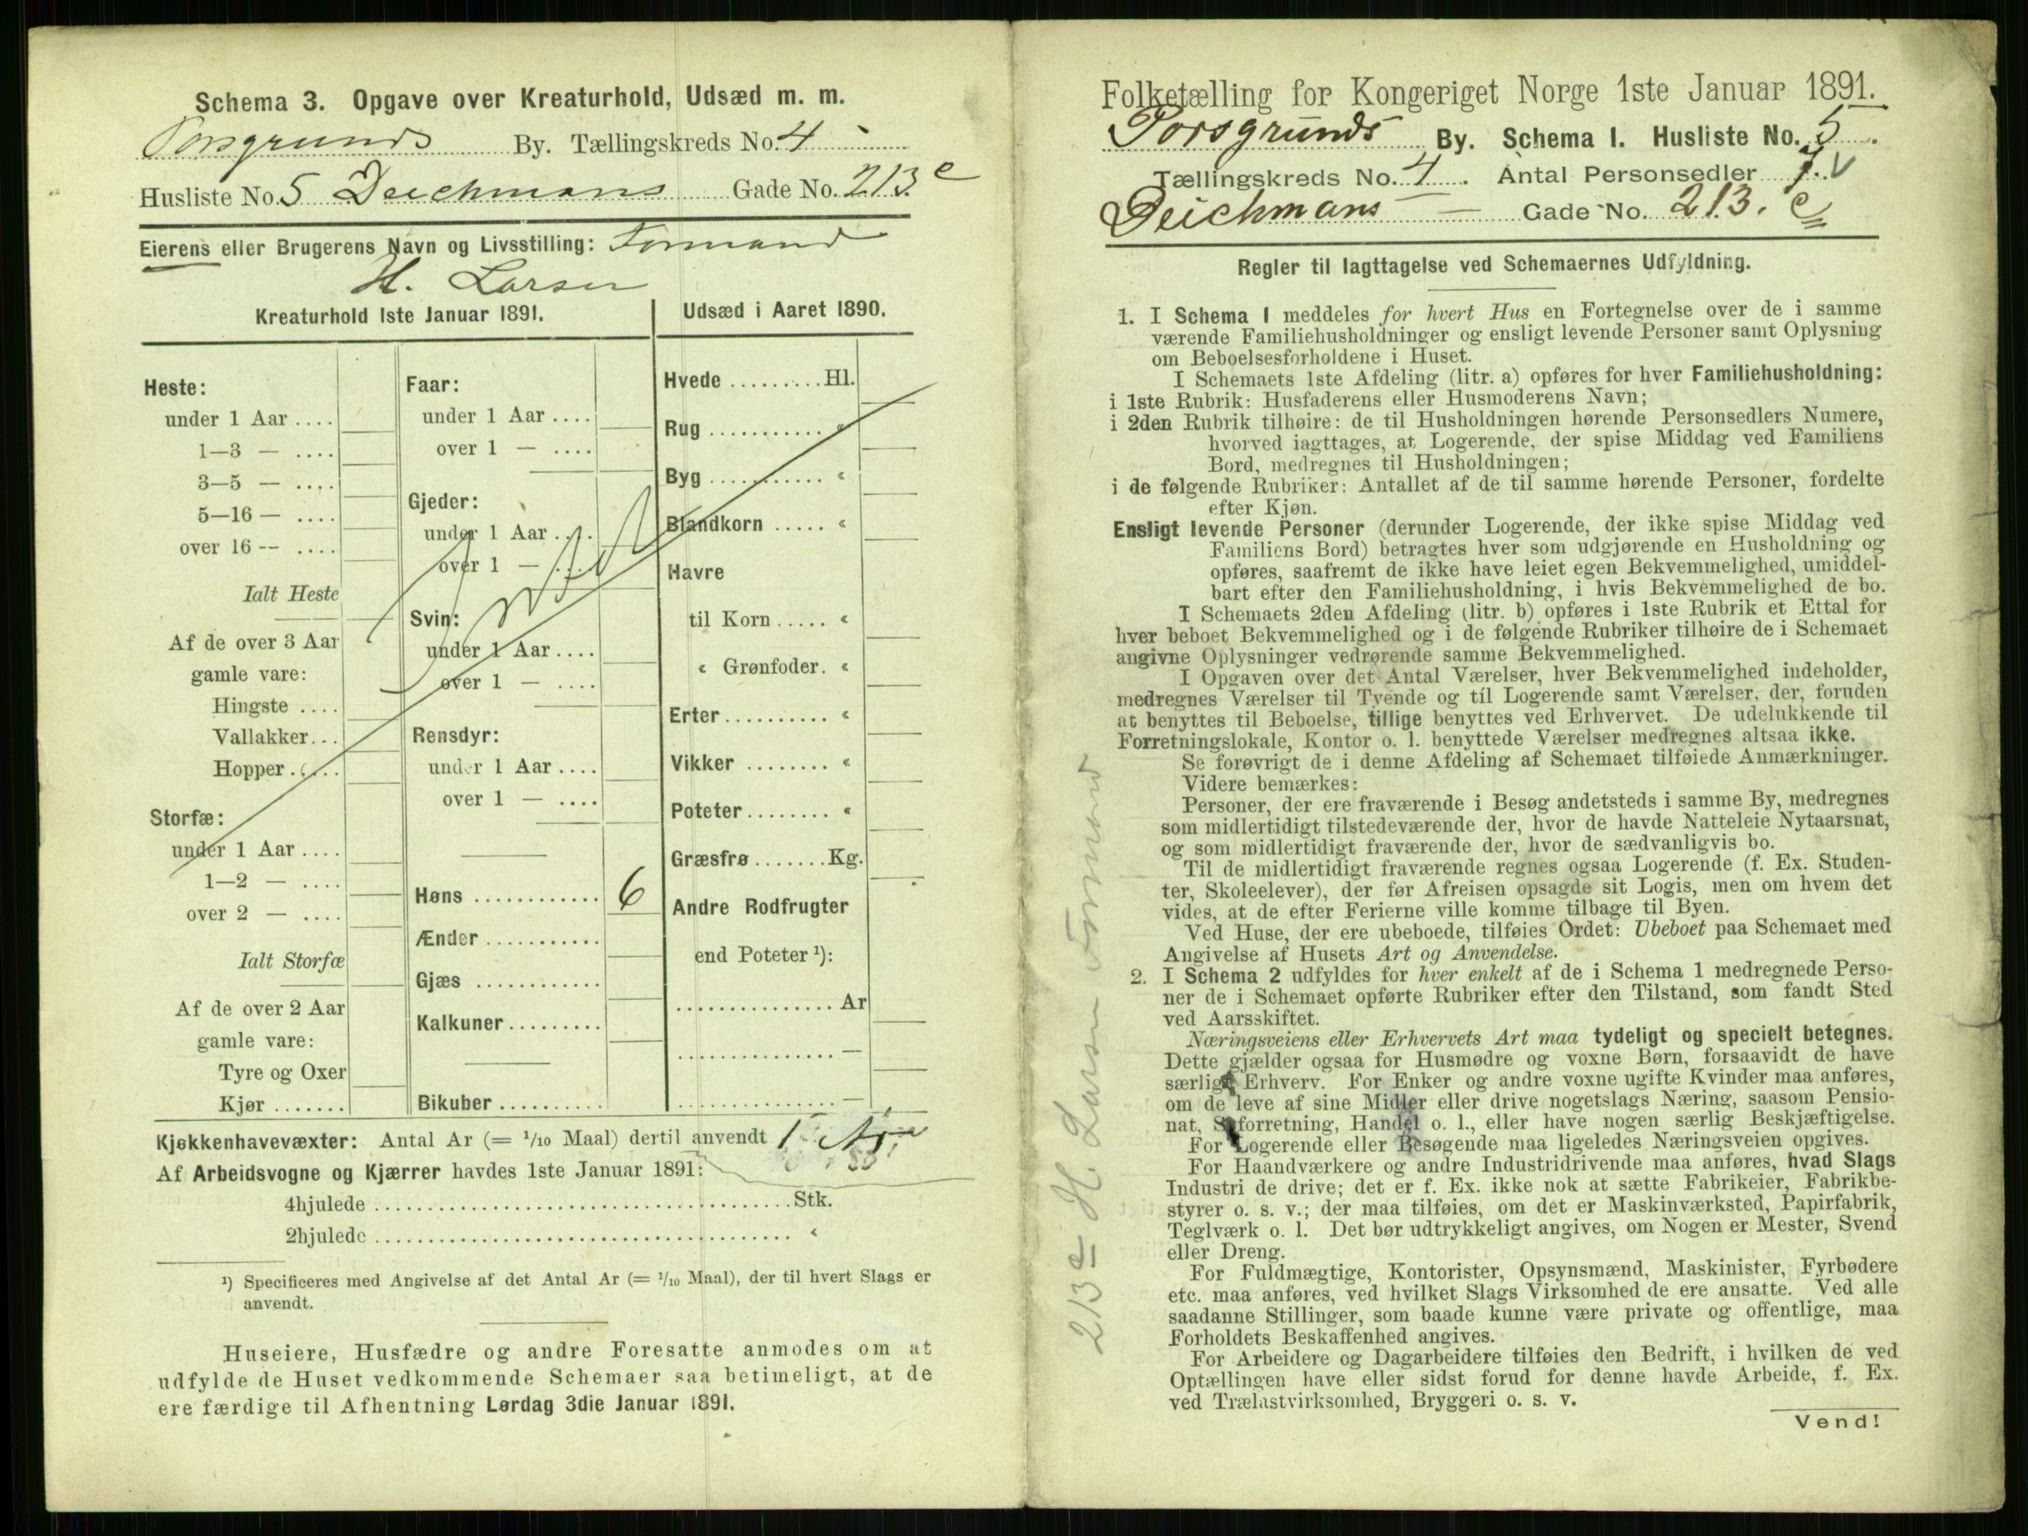 Schema 3. Opgave over Kreaturhold, Udsæd m. m.
Porsgrunds By. Tællingskreds No. 4
Husliste No. 5 Deichmans Gade No. 213 c
Eierens eller Brugerens Navn og Livsstilling: Formand
H. Larsen
Kreaturhold 1ste Januar 1891.
Heste:
under 1 Aar ....
1—3 — ....
3—5 — ....
5—16 — ....
over 16 -- ....
Ialt Heste
Af de over 3 Aar
gamle vare:
Hingste ....
Vallakker...
Hopper.....
Storfæ:
under 1 Aar ....
1—2 — ....
over 2 — ....
Ialt Storfæ
Af de over 2 Aar
gamle vare:
Tyre og Oxer
Kjør.......
Faar:
under 1 Aar ....
over 1 — ....
Gjeder:
under 1 Aar ....
over 1 — ....
Svin:
under 1 Aar ....
over 1 — ....
Rensdyr:
under 1 Aar ....
over 1 — ....
Høns ............ 6
Ænder...........
Gjæs ............
Kalkuner.........
Bikuber ..........
Udsæd i Aaret 1890.
Hvede .........Hl.
Rug ........... «
Byg ............ «
Blandkorn ..... «
Havre
til Korn ..... «
« Grønfoder. «
Erter.......... «
Vikker ........ «
Poteter........ «
Græsfrø.......Kg.
Andre Rodfrugter
end Poteter ¹):
...............Ar
............... —
............... —
Kjøkkenhavevæxter: Antal Ar (= 1/10 Maal) dertil anvendt 1 Ar
Af Arbeidsvogne og Kjærrer havdes 1ste Januar 1891:
4hjulede ........................................Stk.
2hjulede ........................................ «
¹) Specificeres med Angivelse af det Antal Ar (= 1/10 Maal), der til hvert Slags er
anvendt.
Huseiere, Husfædre og andre Foresatte anmodes om at
udfylde de Huset vedkommende Schemaer saa betimeligt, at de
ere færdige til Afhentning Lørdag 3die Januar 1891.
213 c H. Larsen Formand
Folketælling for Kongeriget Norge 1ste Januar 1891.
Porsgrunds By. Schema I. Husliste No. 5
Tællingskreds No. 4. Antal Personsedler 7. v
Deichmans — Gade No. 213. c
Regler til Iagttagelse ved Schemaernes Udfyldning.
1. I Schema I meddeles for hvert Hus en Fortegnelse over de i samme
værende Familiehusholdninger og ensligt levende Personer samt Oplysning
om Beboelsesforholdene i Huset.
I Schemaets 1ste Afdeling (litr. a) opføres for hver Familiehusholdning:
i 1ste Rubrik: Husfaderens eller Husmoderens Navn;
i 2den Rubrik tilhøire: de til Husholdningen hørende Personsedlers Numere,
hvorved iagttages, at Logerende, der spise Middag ved Familiens
Bord, medregnes til Husholdningen;
i de følgende Rubriker: Antallet af de til samme hørende Personer, fordelte
efter Kjøn.
Ensligt levende Personer (derunder Logerende, der ikke spise Middag ved
Familiens Bord) betragtes hver som udgjørende en Husholdning og
opføres, saafremt de ikke have leiet egen Bekvemmelighed, umiddel-
bart efter den Familiehusholdning, i hvis Bekvemmelighed de bo.
I Schemaets 2den Afdeling (litr. b) opføres i 1ste Rubrik et Ettal for
hver beboet Bekvemmelighed og i de følgende Rubriker tilhøire de i Schemaet
angivne Oplysninger vedrørende samme Bekvemmelighed.
I Opgaven over det Antal Værelser, hver Bekvemmelighed indeholder,
medregnes Værelser til Tyende og til Logerende samt Værelser, der, foruden
at benyttes til Beboelse, tillige benyttes ved Erhvervet. De udelukkende til
Forretningslokale, Kontor o. l. benyttede Værelser medregnes altsaa ikke.
Se forøvrigt de i denne Afdeling af Schemaet tilføiede Anmærkninger.
Videre bemærkes:
Personer, der ere fraværende i Besøg andetsteds i samme By, medregnes
som midlertidigt tilstedeværende der, hvor de havde Natteleie Nytaarsnat,
og som midlertidigt fraværende der, hvor de sædvanligvis bo.
Til de midlertidigt fraværende regnes ogsaa Logerende (f. Ex. Studen-
ter, Skoleelever), der før Afreisen opsagde sit Logis, men om hvem det
vides, at de efter Ferierne ville komme tilbage til Byen.
Ved Huse, der ere ubeboede, tilføies Ordet: Ubeboet paa Schemaet med
Angivelse af Husets Art og Anvendelse.
2. I Schema 2 udfyldes for hver enkelt af de i Schema 1 medregnede Perso-
ner de i Schemaet opførte Rubriker efter den Tilstand, som fandt Sted
ved Aarsskiftet.
Næringsveiens eller Erhvervets Art maa tydeligt og specielt betegnes.
Dette gjælder ogsaa for Husmødre og voxne Børn, forsaavidt de have
særligt Erhverv. For Enker og andre voxne ugifte Kvinder maa anføres,
om de leve af sine Midler eller drive nogetslags Næring, saasom Pensio-
nat, Syforretning, Handel o. l., eller have nogen særlig Beskjæftigelse.
For Logerende eller Besøgende maa ligeledes Næringsveien opgives.
For Haandværkere og andre Industridrivende maa anføres, hvad Slags
Industri de drive; det er f. Ex. ikke nok at sætte Fabrikeier, Fabrikbe-
styrer o. s. v.; der maa tilføies, om det er Maskinværksted, Papirfabrik,
Teglværk o. l. Det bør udtrykkeligt angives, om Nogen er Mester, Svend
eller Dreng.
For Fuldmægtige, Kontorister, Opsynsmænd, Maskinister, Fyrbødere
etc. maa anføres, ved hvilket Slags Virksomhed de ere ansatte. Ved alle
saadanne Stillinger, som baade kunne være private og offentlige, maa
Forholdets Beskaffenhed angives.
For Arbeidere og Dagarbeidere tilføies den Bedrift, i hvilken de ved
Optællingen have eller sidst forud for denne havde Arbeide, f. Ex.
ved Trælastvirksomhed, Bryggeri o. s. v.
Vend!